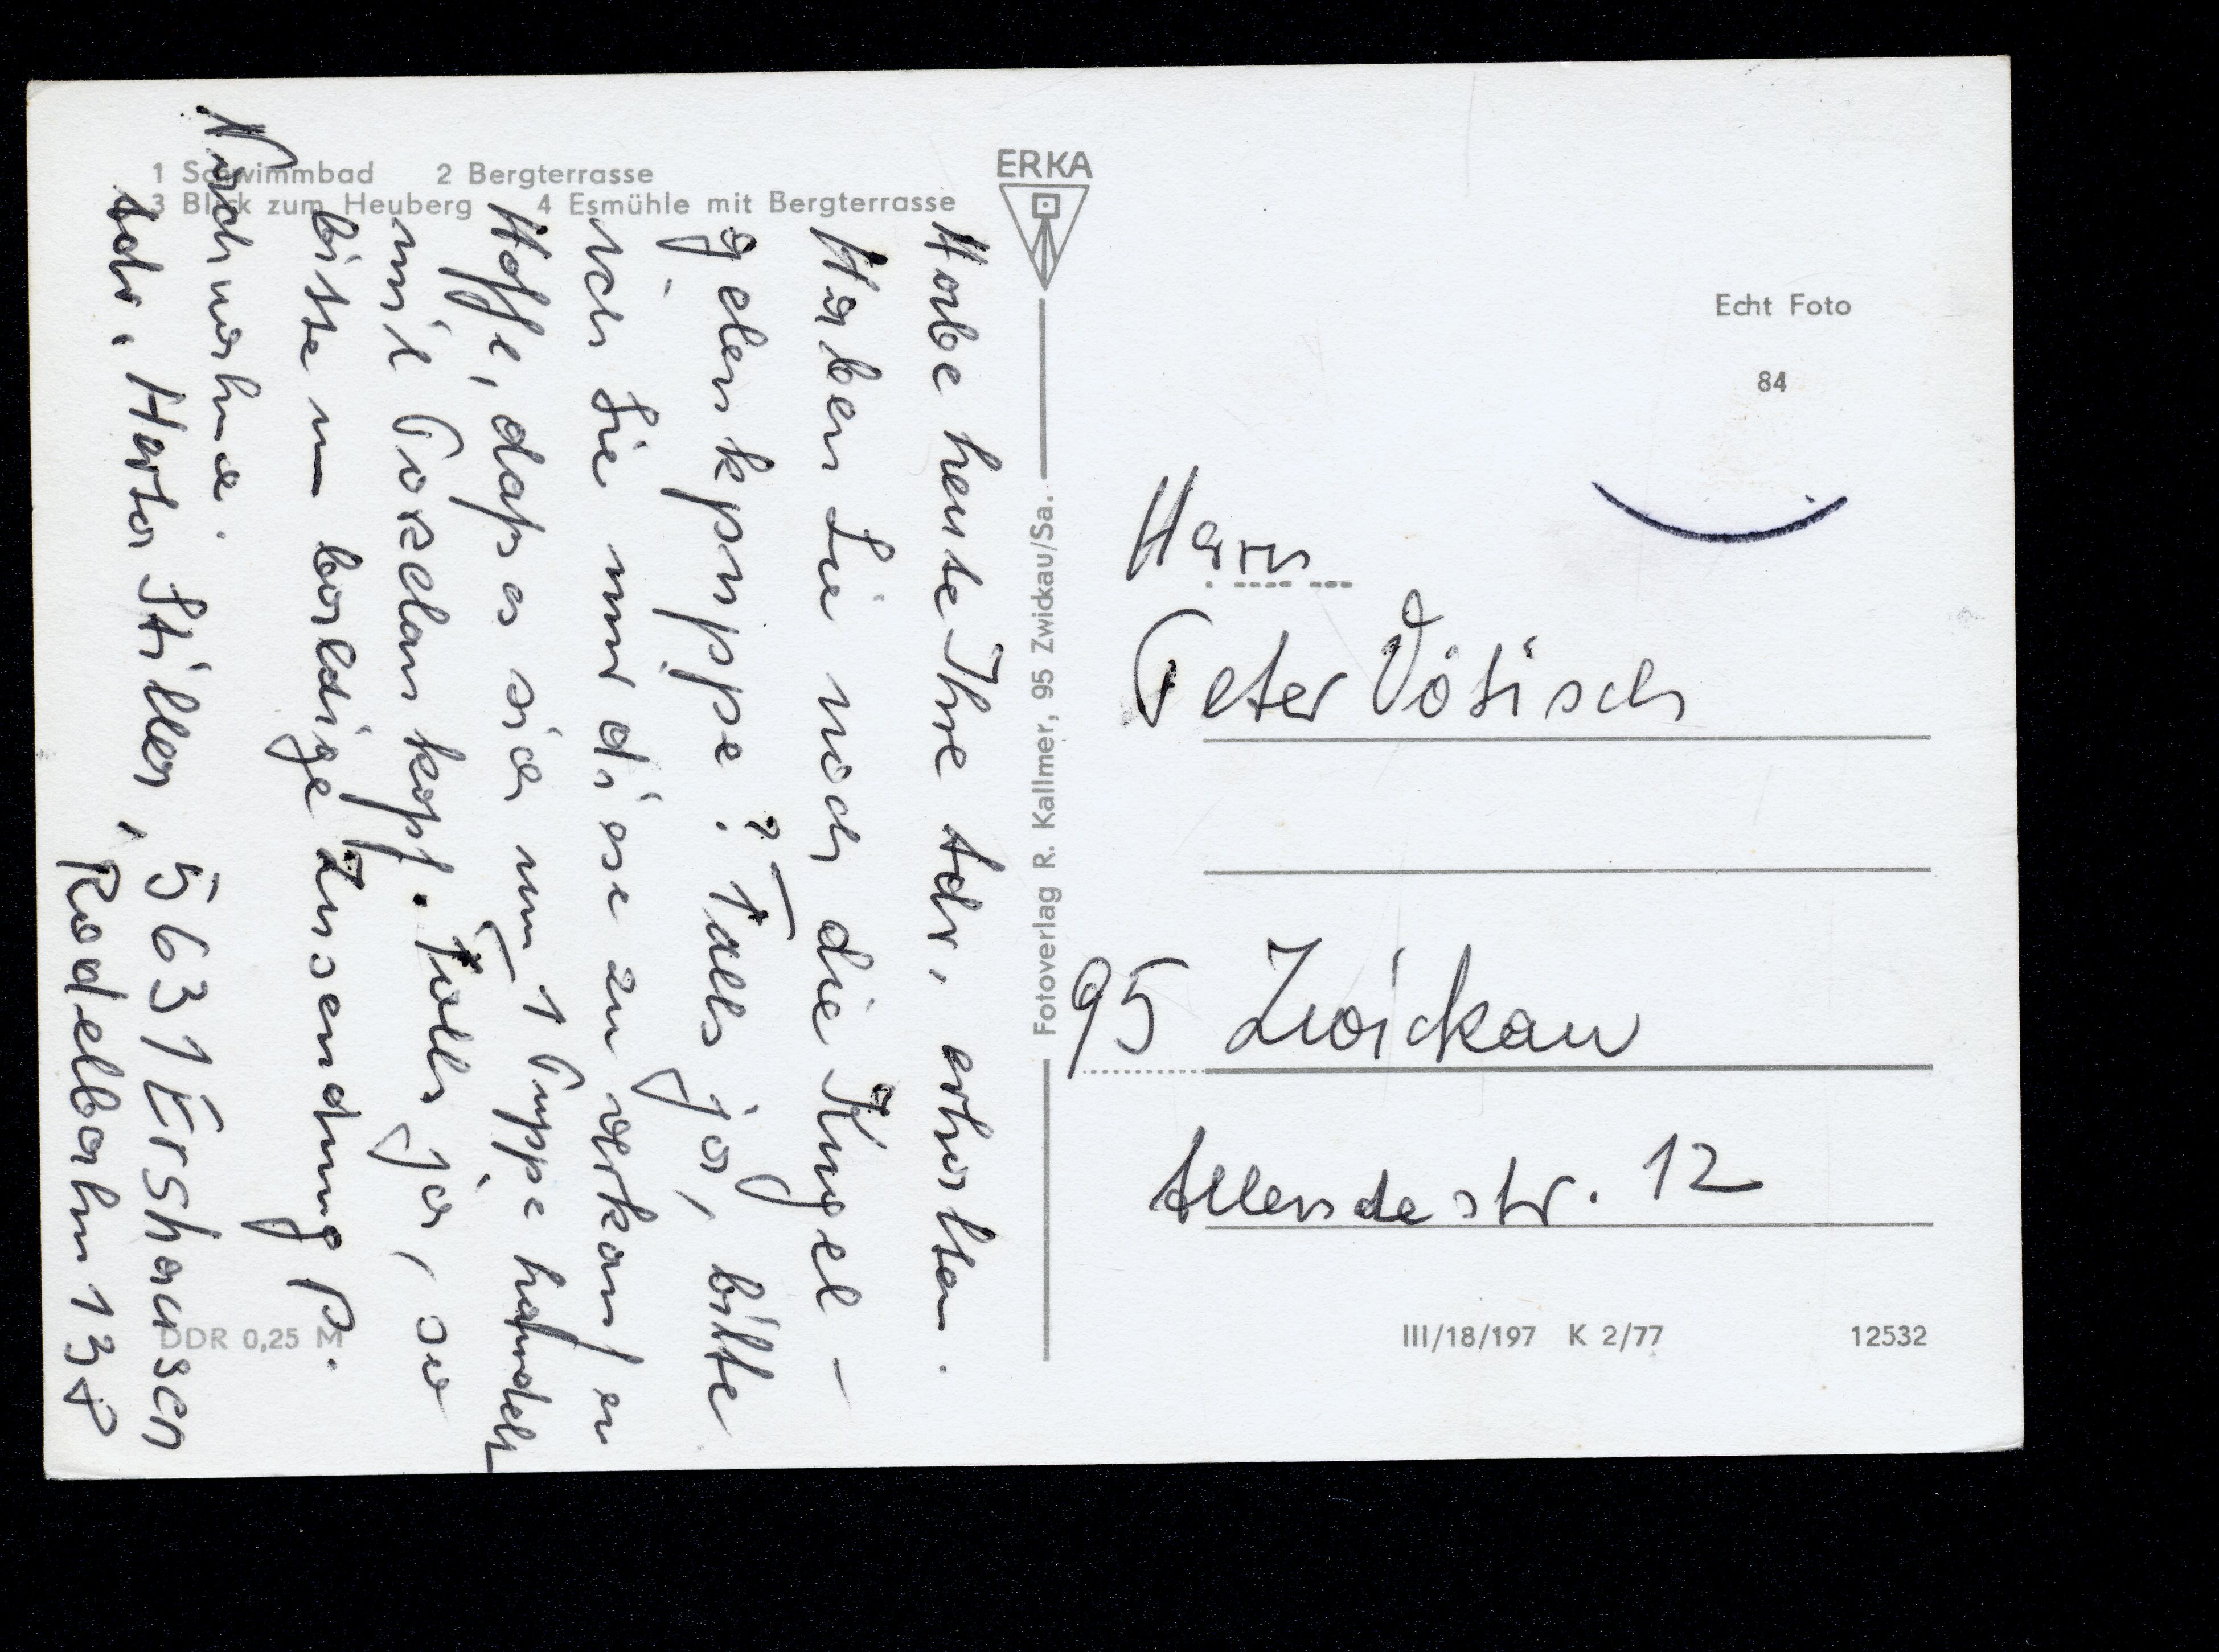 1 Schwimmbad 2 Bergterrasse
3 Blick zum Heuberg 4 Esmühle mit Bergterrasse
Habe heute Ihre Adr. erhalten.
Haben Sie noch die Kugel-
gelenkpuppe? Falls ja, bitte
ich Sie mir diese zu verkaufen
Hoffe, daß es sich um 1 Puppe handelt
mit Porzelankopf. Falls ja, so
bitte um baldige Zusendung p.
Nachnahme.
Adr. Herta Stiller, 5631 Ershausen
Rodelbahn 138
DDR 0,25 M
ERKA
Fotoverlag R. Kallmer, 95 Zwickau/Sa.
Echt Foto
84
Herrn
Peter Vötisch
95 Zwickau
Allendestr. 12
III/18/197 K 2/77 12532